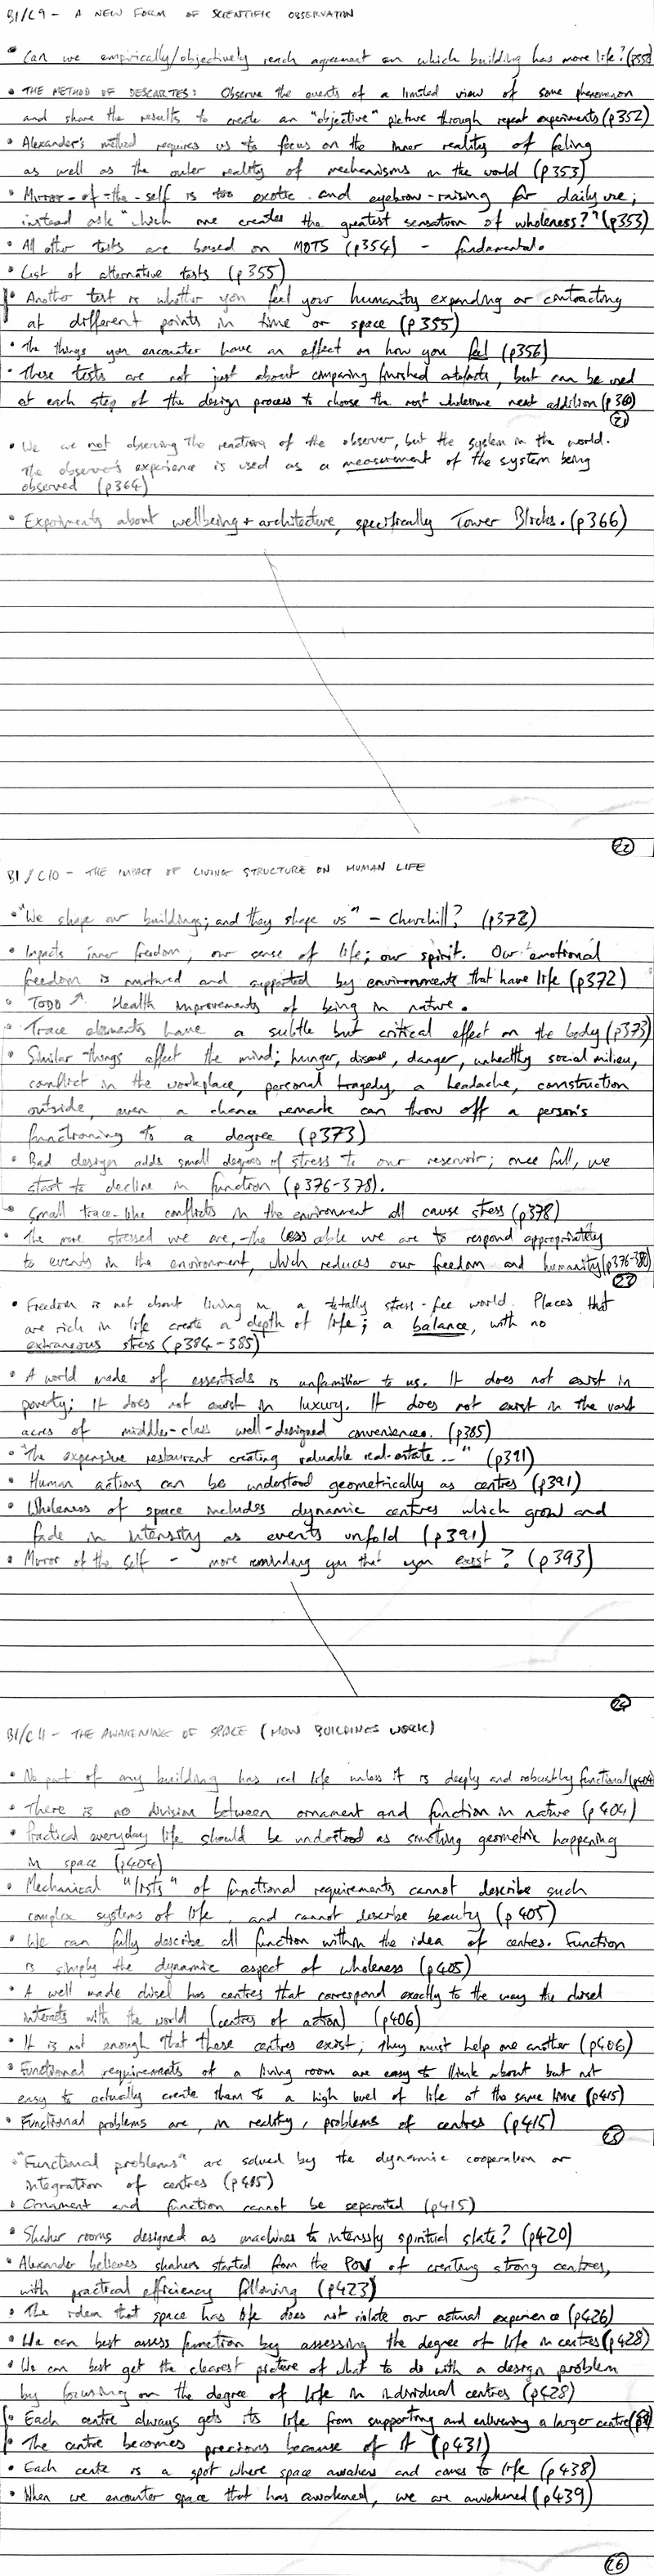 B1/C9 - A NEW FORM OF SCIENTIFIC OBSERVATION
• Can we empirically/objectively reach agreement on which building has more life? (p352)
• THE METHOD OF DESCARTES: Observe the events of a limited view of some phenomenon
and share the results to create an "objective" picture through repeat experiments (p352)
• Alexander's method requires us to focus on the inner reality of feeling
as well as the outer reality of mechanisms in the world (p353)
• Mirror-of-the-self is too exotic and eyebrow-raising for daily use;
instead ask "which one creates the greatest sensation of wholeness?" (p353)
• All other tests are based on MOTS (p354) - fundamental.
• List of alternative tests (p355)
• Another test is whether you feel your humanity expanding or contracting
at different points in time or space (p355)
• The things you encounter have an effect on how you feel (p356)
• These tests are not just about comparing finished artefacts, but can be used
at each step of the design process to choose the most wholesome next addition (p360)
21
• We are not observing the reaction of the observer, but the system in the world.
The observer's experience is used as a measurement of the system being
observed (p364)
• Experiments about wellbeing + architecture, specifically Tower Blocks. (p366)
22
B1/C10 - THE IMPACT OF LIVING STRUCTURE ON HUMAN LIFE
• "We shape our buildings; and they shape us" - Churchill? (p372)
• Impacts inner freedom; our sense of life; our spirit. Our emotional
freedom is nurtured and supported by environments that have life (p372)
• TODO ↗ Health improvements of being in nature.
• Trace elements have a subtle but critical effect on the body (p373)
• Similar things affect the mind; hunger, disease, danger, unhealthy social milieu,
conflict in the workplace, personal tragedy, a headache, construction
outside, even a chance remark can throw off a person's
functioning to a degree (p373)
• Bad design adds small degrees of stress to our reservoir; once full, we
start to decline in function (p376-378).
• Small trace-like conflicts in the environment all cause stress (p378)
• The more stressed we are, the less able we are to respond appropriately
to events in the environment, which reduces our freedom and humanity (p376-380)
23
• Freedom is not about living in a totally stress-free world. Places that
are rich in life create a depth of life; a balance, with no
extraneous stress (p384-385)
• A world made of essentials is unfamiliar to us. It does not exist in
poverty; It does not exist in luxury. It does not exist in the vast
acres of middle-class well-designed conveniences. (p385)
• "The expensive restaurant creating valuable real-estate..." (p391)
• Human actions can be understood geometrically as centres (p391)
• Wholeness of space includes dynamic centres which grow and
fade in intensity as events unfold (p391)
• Mirror of the self - more reminding you that you exist? (p393)
24
B1/C11 - THE AWAKENING OF SPACE (HOW BUILDINGS WORK)
• No part of any building has real life unless it is deeply and robustly functional (p404)
• There is no division between ornament and function in nature (p404)
• Practical everyday life should be understood as something geometric happening
in space (p404)
• Mechanical "lists" of functional requirements cannot describe such
complex systems of life, and cannot describe beauty (p405)
• We can fully describe all function within the idea of centres. Function
is simply the dynamic aspect of wholeness (p405)
• A well made chisel has centres that correspond exactly to the way the chisel
interacts with the world (centres of action) (p406)
• It is not enough that these centres exist; they must help one another (p406)
• Functional requirements of a living room are easy to think about but not
easy to actually create them to a high level of life at the same time (p415)
• Functional problems are, in reality, problems of centres (p415)
25
• "Functional problems" are solved by the dynamic cooperation or
integration of centres (p415)
• Ornament and function cannot be separated (p415)
• Shaker rooms designed as machines to intensify spiritual state? (p420)
• Alexander believes shakers started from the POV of creating strong centres,
with practical efficiency following (p423)
• The idea that space has life does not violate our actual experience (p426)
• We can best assess function by assessing the degree of life in centres (p428)
• We can best get the clearest picture of what to do with a design problem
by focusing on the degree of life in individual centres (p428)
• Each centre always gets its life from supporting and enlivening a larger centre
• The centre becomes precious because of it (p431)
• Each centre is a spot where space awakens and comes to life (p438)
• When we encounter space that has awakened, we are awakened (p439)
26